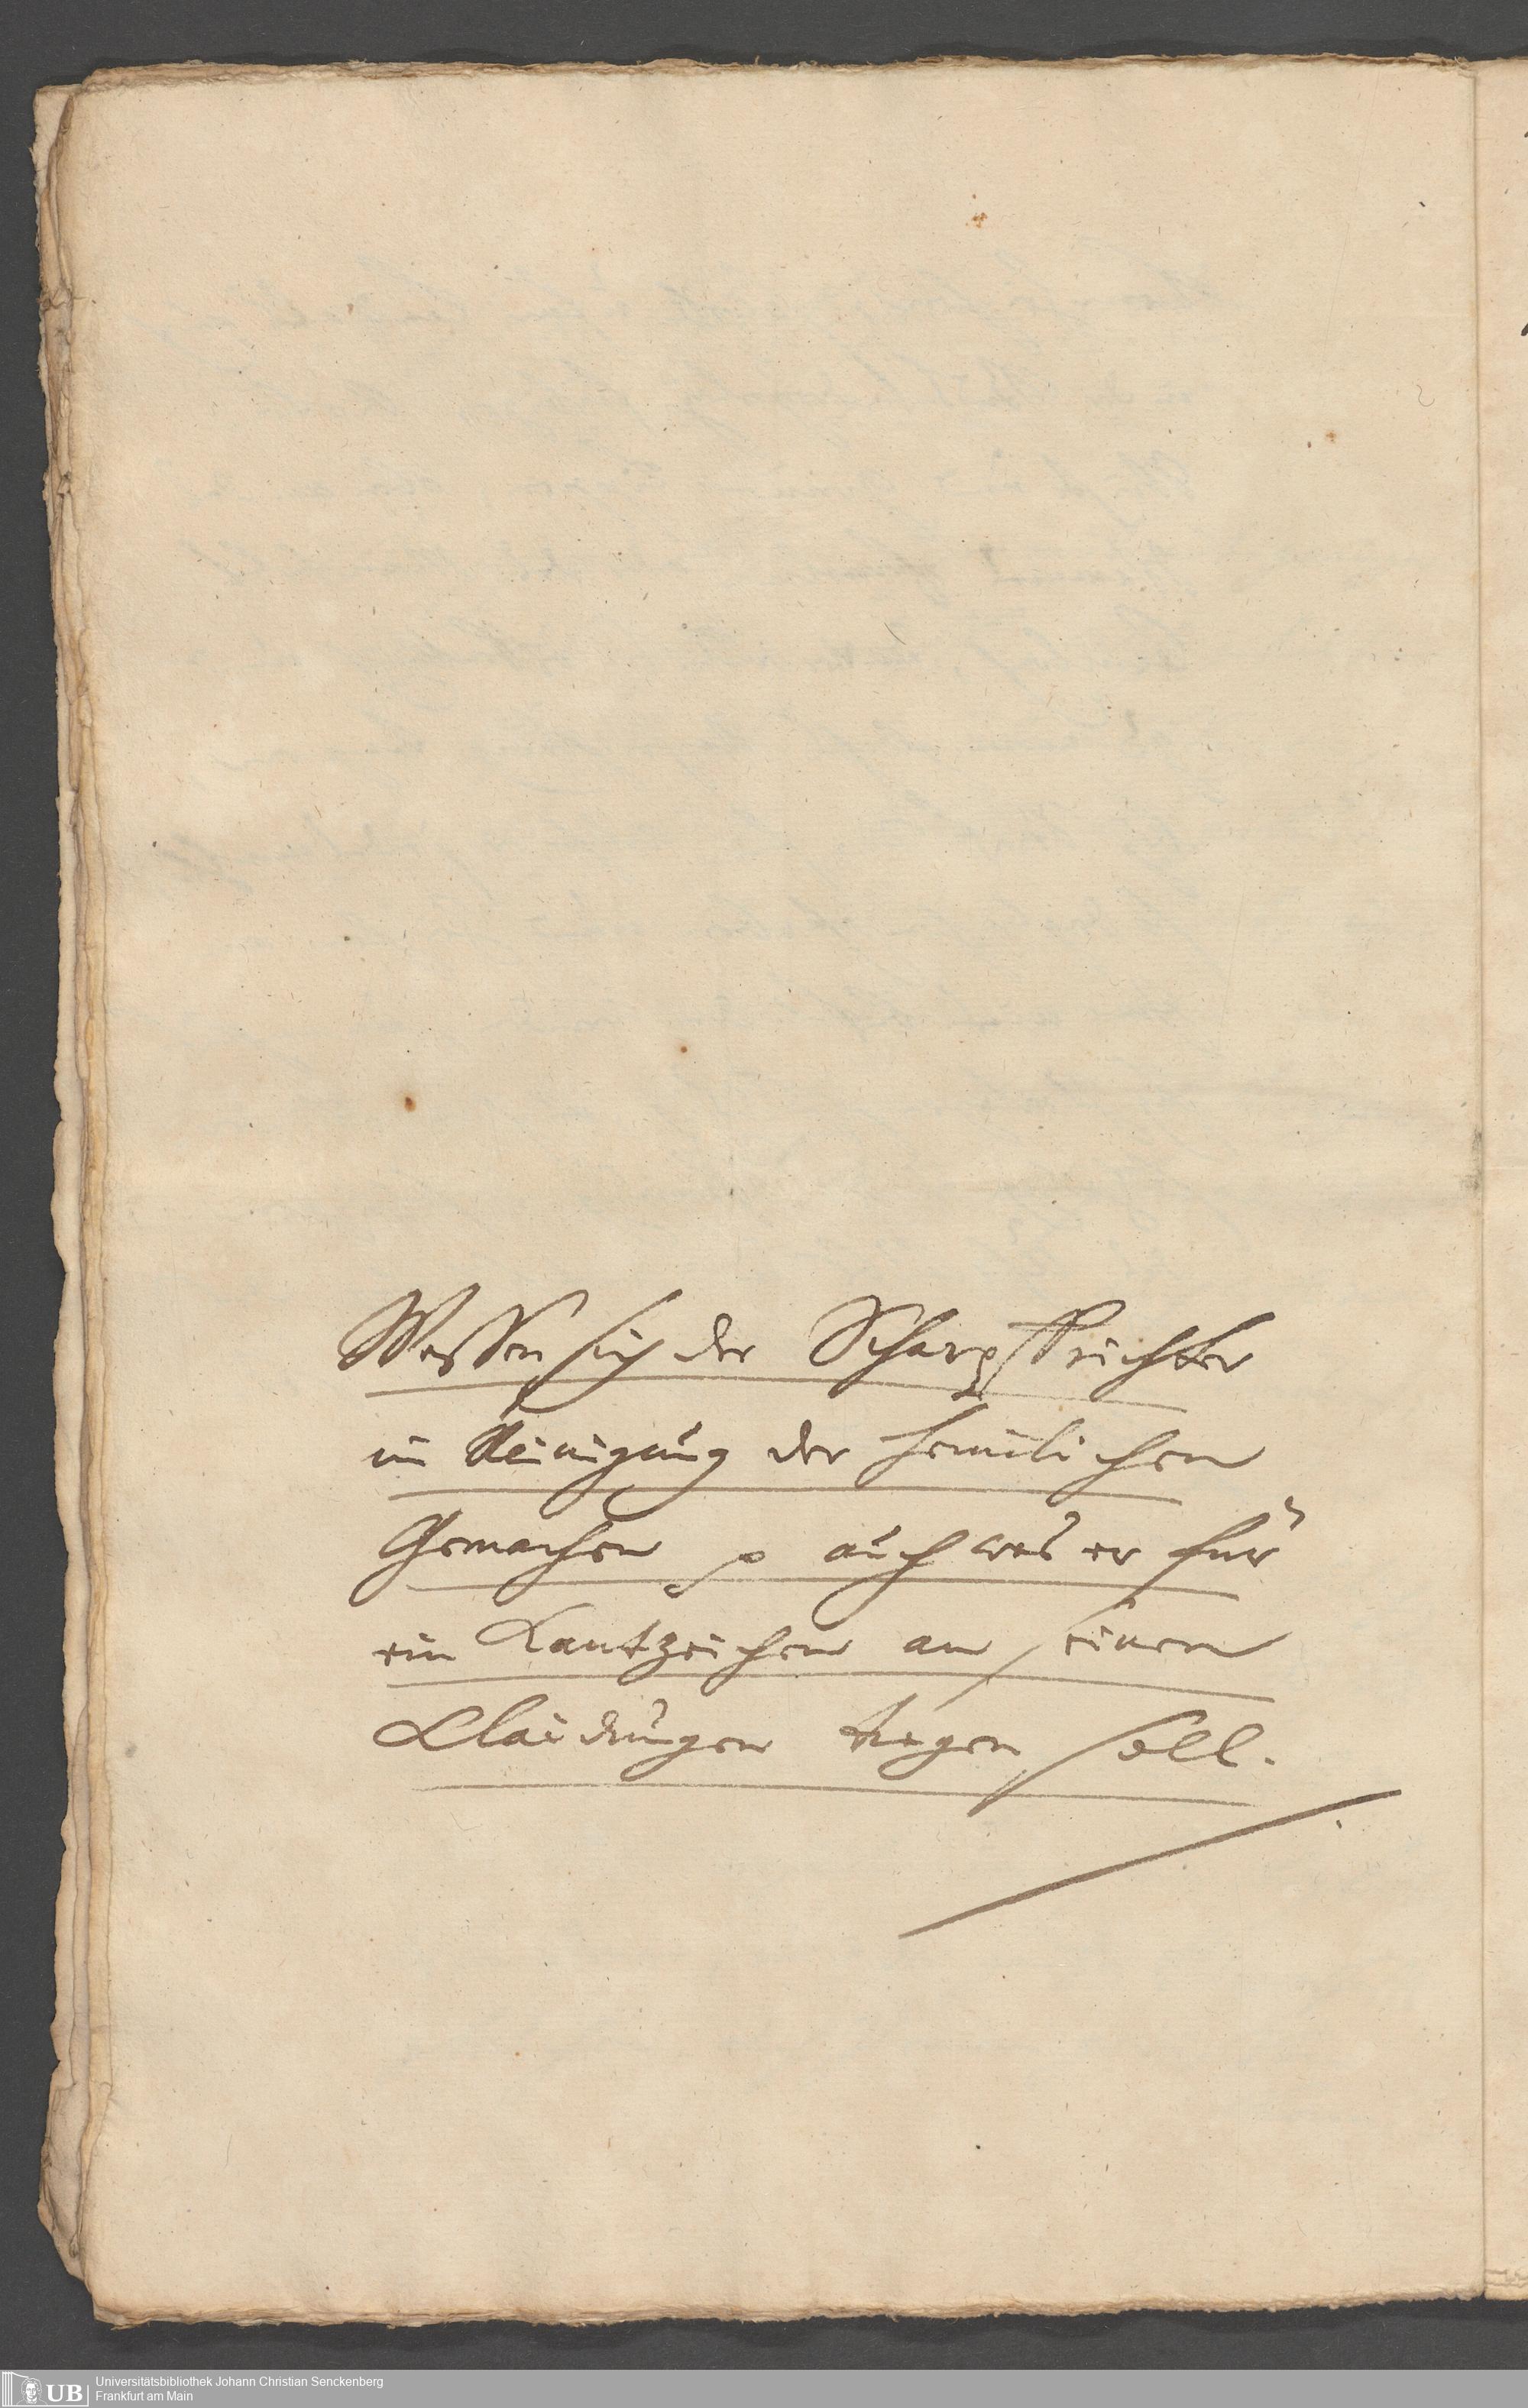 Wessen sich der Scharpffrichter
in Reinigung der heimlichen
Gemachen p auch was er für
ein Kantzeichen an seinen
Klaidungen tragen soll.
UB
Universitätsbibliothek Johann Christian Senckenberg
Frankfurt am Main